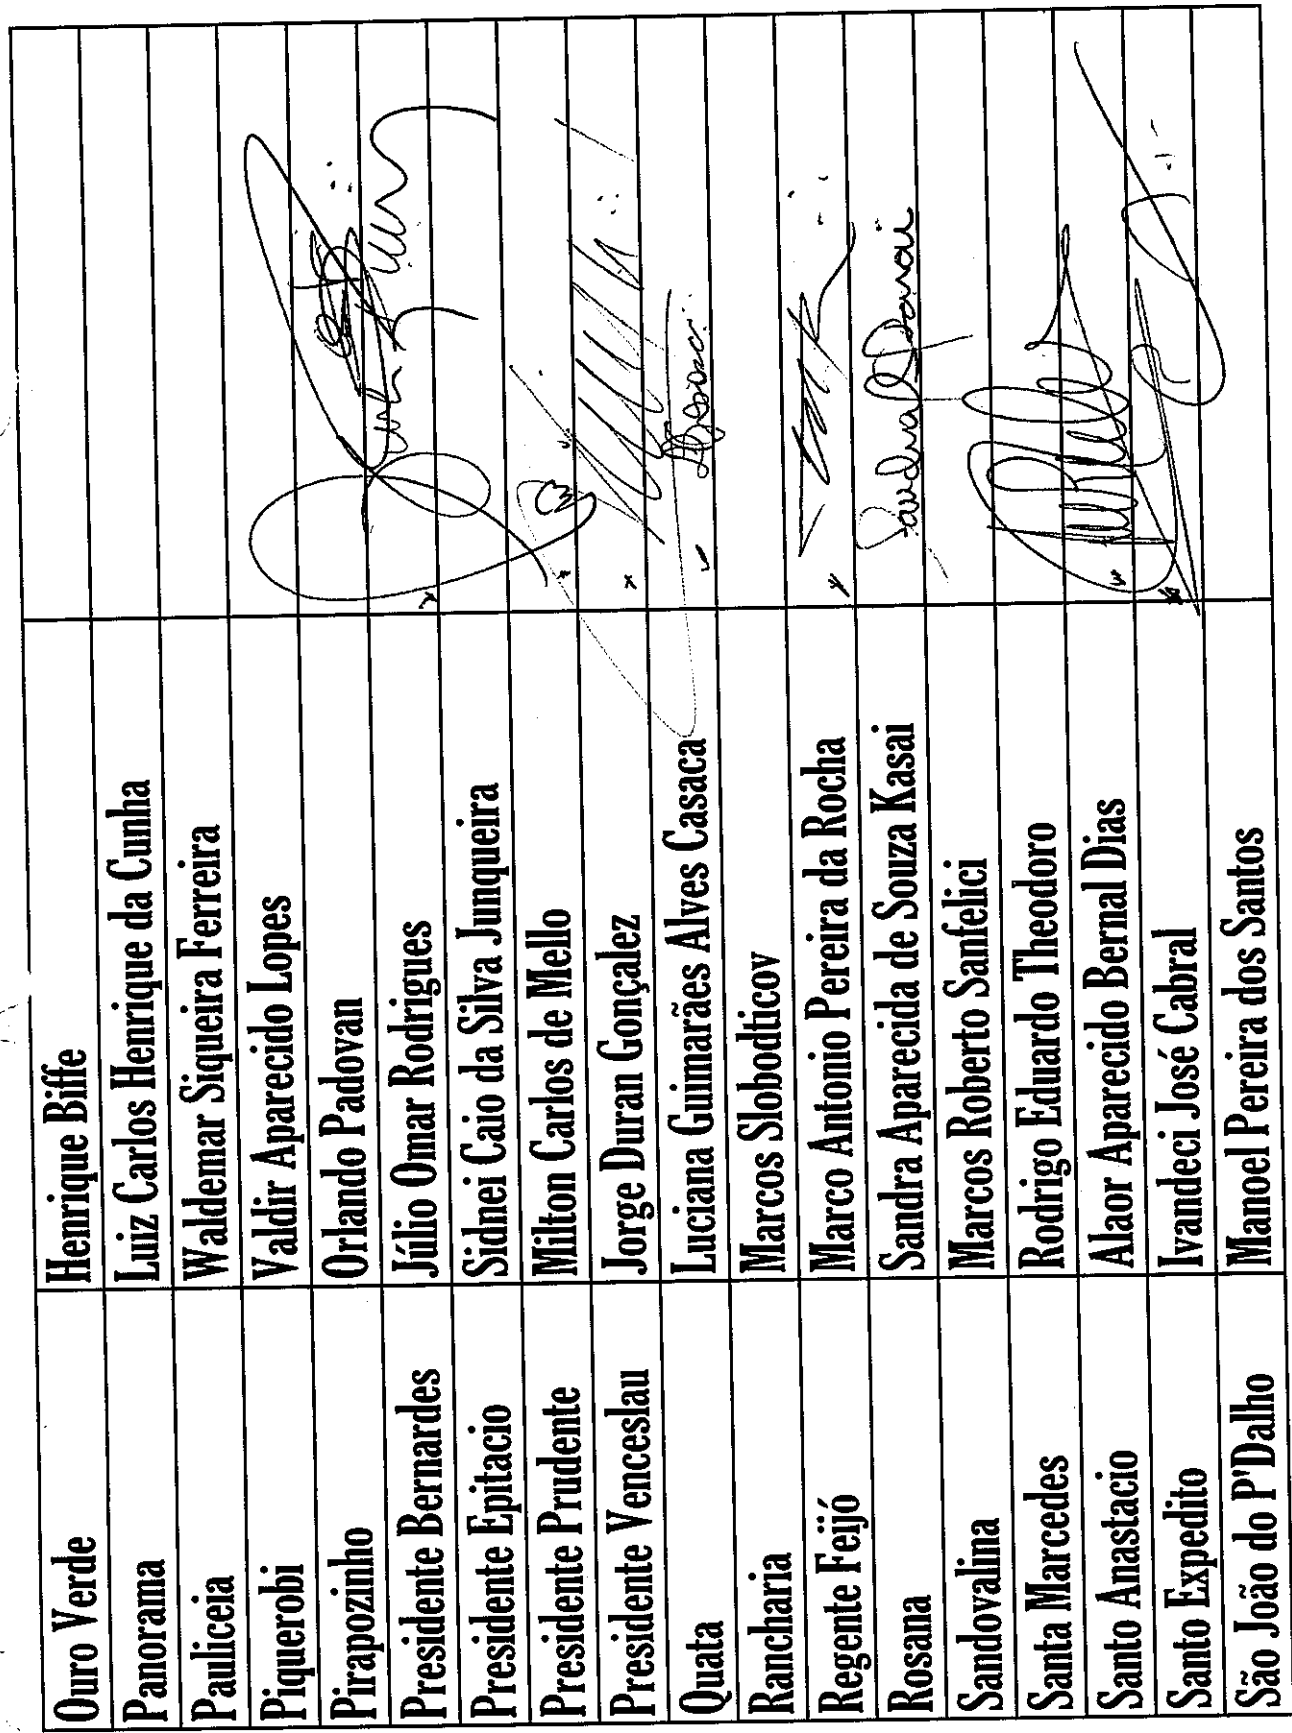 Ouro Verde Henrique Biffe
Panorama Luiz Carlos Henrique da Cunha
Pauliceia Waldemar Siqueira Ferreira
Piquerobi Valdir Aparecido Lopes
Pirapozinho Orlando Padovan
Presidente Bernardes Júlio Omar Rodrigues
Presidente Epitacio Sidnei Caio da Silva Junqueira
Presidente Prudente Milton Carlos de Mello
Presidente Venceslau Jorge Duran Gonçalez
Quata Luciana Guimarães Alves Casaca
Rancharia Marcos Slobodticov
Regente Feijó Marco Antonio Pereira da Rocha
Rosana Sandra Aparecida de Souza Kasai
Sandovalina Marcos Roberto Sanfelici
Santa Marcedes Rodrigo Eduardo Theodoro
Santo Anastacio Alaor Aparecido Bernal Dias
Santo Expedito Ivandeci José Cabral
São João do P'Dalho Manoel Pereira dos Santos